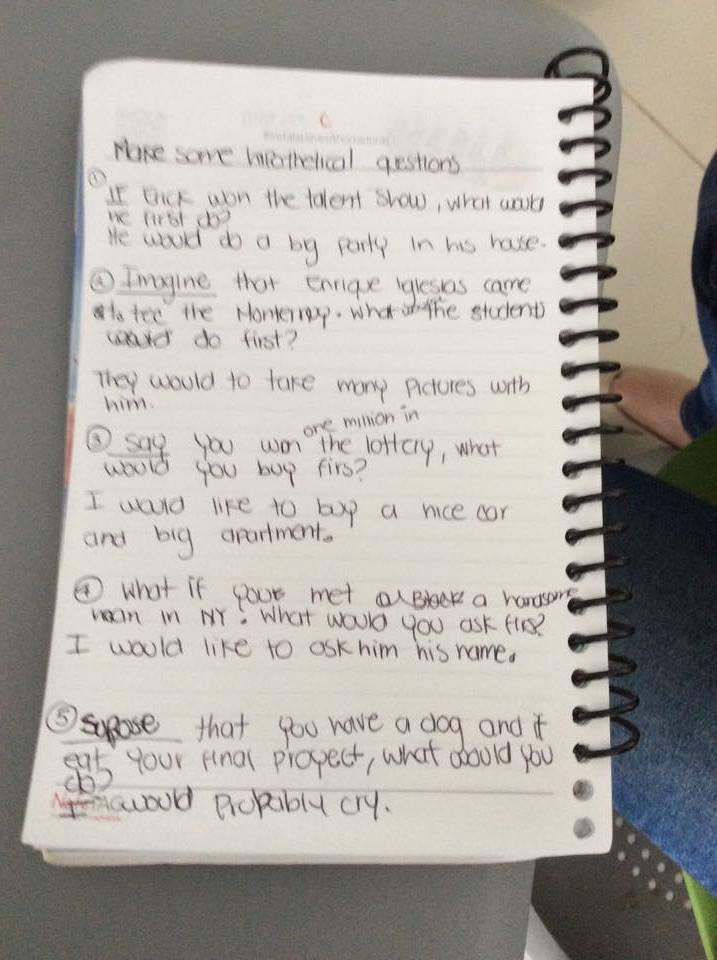 C
Make some hipothetical questions
① If Erick won the talent show, what would
he first do?
He would do a big party in his house.
② Imagine that Enrique Iglesias came
to tec the Monterrey. What the students
would do first?
They would to take many pictures with
him.
one million in
③ say you won the lottery, what
would you buy firs?
I would like to buy a nice car
and big apartment.
④ What if you met a handsome
man in NY. What would you ask firs?
I would like to ask him his name.
⑤ Supose that you have a dog and it
eat your final proyect, what would you
do?
I would propably cry.